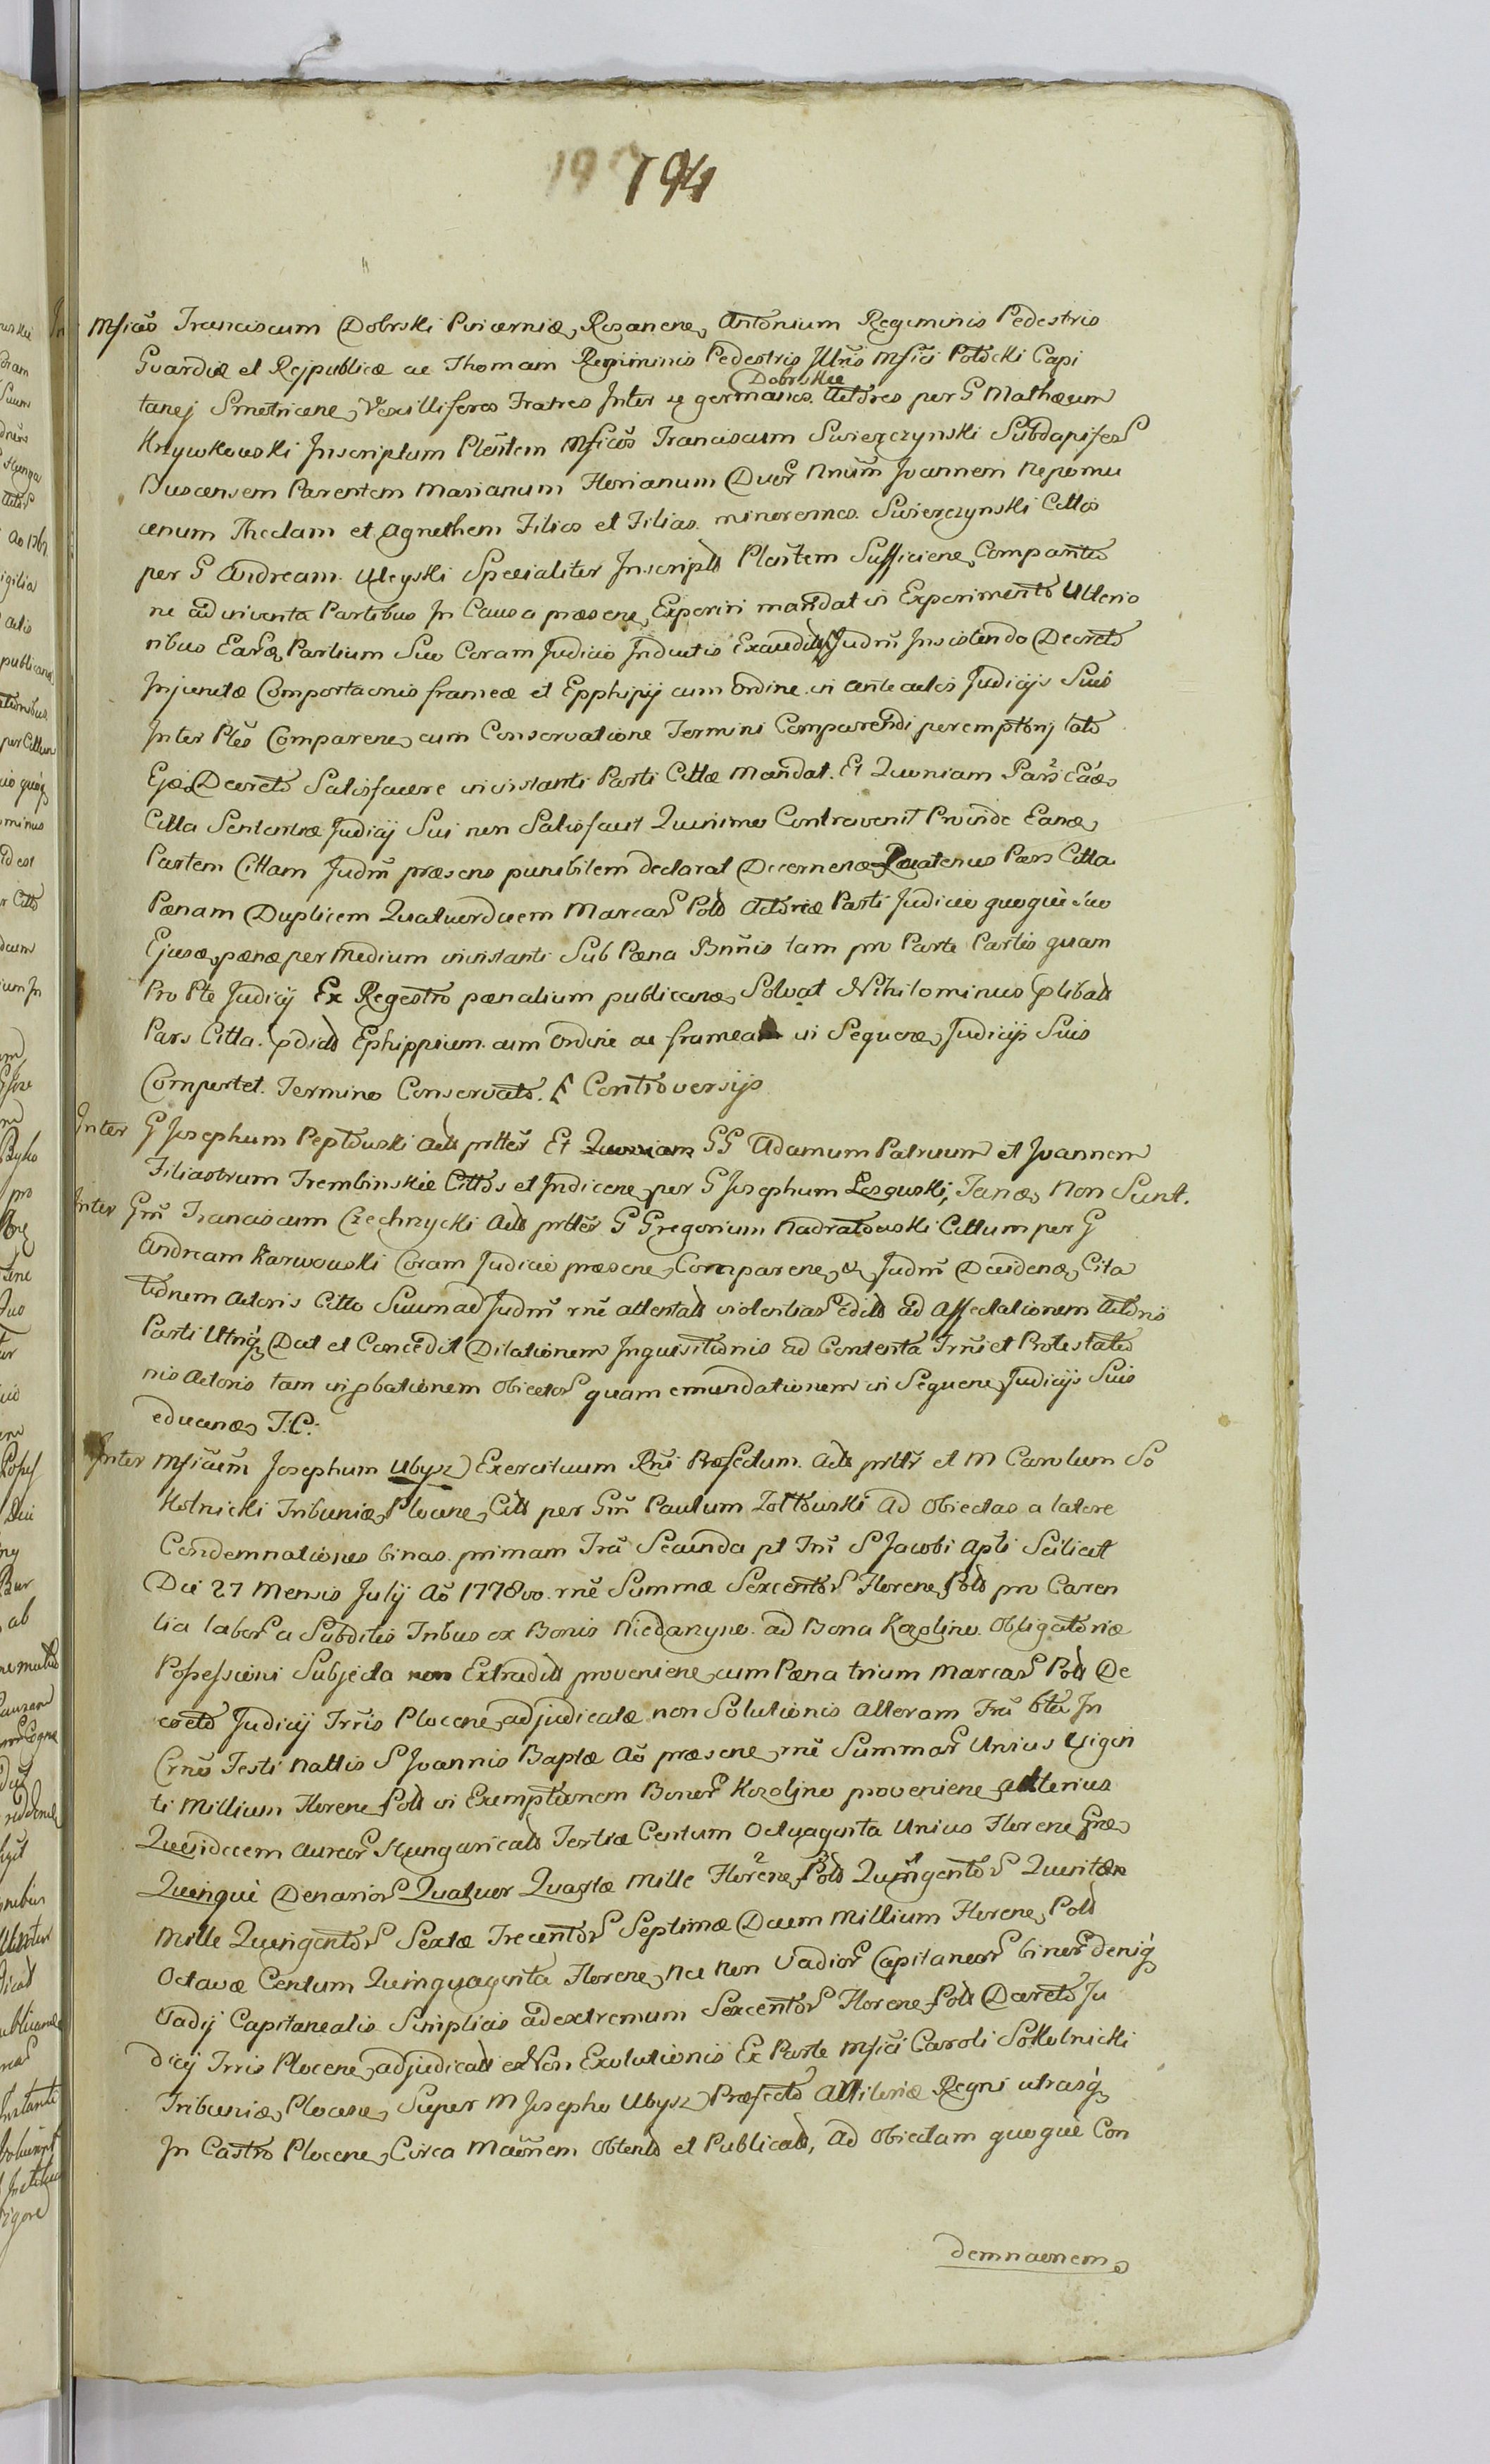 194
Inter Mficos Franciscum Dobrski Pincerniæ Rosanen, Antonium Regiminis Pedestris
Gvardiæ et Rejpublicæ ac Thomam Regiminis Pedestris Illris Mfici Potocki Capi
Dobrskie
tanej Smetricen, Vexilliferos Fratres Inter se germanos Actores per G Mathæum
Krzywkowski Inscriptum Plentem Mficos Franciscum Swierczynski Subdapifer
Buscensem Parentem Marianum Florianum Duor Nnum Joannem Nepomu
cenum Theclam et Agnethem Filios et Filias minorennes Swierczynski Cittos
per G Andream Uleyski Specialiter Inscripto Plentem Sufficien, Comparentes
ne adinventa Partibus In Causa præsen, Experiri mandat in Experimento Ulterio
ribus Earũ Partium Suo Coram Judicio Inductis Exauditis Judm Insistendo Decreto
Injunctæ Comportaonis frameæ et Epphipij cum ordine in Anteactis Judicijs Suis
Inter Ptes Comparen, cum Conservatione Termini Comparendi peremptorij lato
Ejõ Decreto Satisfacere in instanti Parti Cittæ Mandat. Et Quoniam Pars Eãd
Citta Sententiæ Judicij Sui non Satisfecit Quinimo Contravenit Proinde Eand
Partem Cittam Judm præsens punibilem declarat Decernend Quatenus Pars Citta
Pœnam Duplicem Quatuordecem Marcar Pold Actoreæ Parti Judicio quoque suo
Ejusd pœnæ per Medium in instanti Sub Pœna Bnnis tam pro Parte Partis quam
Pro Pte Judicij Ex Regestro pœnalium publicand, Solvat Nihilominus plibata
Pars Citta pdicta Ephippium cum ordine ac frameam in Sequen, Judicijs Suis
Comportet Termino Conservato. E Controversijs
Inter G Josephum Peptowski Act prtter Et Quoniam GG Adamum Patruum et Joannem
Filiastrum Trembinskie Cittos et Indicen, per G Josephum Lesguski, Tand, Non Sunt.
Inter Gm Franciscum Czechnycki Act prtter G Gregorium Nadratowski Cittum per G
Andream Karwowski Coram Judicio præsen, Comparen, & Judm Decidend, Cita
tionem Actoris Citto Suum ad Judm rne attentati violentiar Edito ad Affectationem Actoris
Parti Utriq, Dat et Concedit Dilationem Inquisitionis ad Contenta Trni et Protestatio
nis Actoris tam in pbationem Obiector quam emundationem in Sequen, Judicijs Suis
educend, T: C:
Inter Mficum Josephum Ubysz Exercituum Rni Præfectum Act prttr et M Carolum So
kolnicki Tribuniæ Plocen, Citt per Gm Paulum Zołtowski ad Obiectas a latere
Condemnationes binas primam Fra Secunda pt Fni S Jacobi Apli Scilicet
Die 27 Mensis July Ao 1778vo rne Summæ Sexcentor Floren, Pold pro Caren
tia labor a Subditis Tribus ex Bonis Niedarzyno ad Bona Kozolino Obligatoriæ
Possessioni Subjecta non Extraditt provenien, cum Pœna trium Marcar Pold De
creto Judicij Trris Plocen, adjudicatæ non Solutionis Alteram Fra 6ta In
Crno Festi Natlis S Joannis Baptæ Ao præsen, rne Summar Unius Vigin
ti Millium Floren, Pold in Exemptionem Bonor Kozolino provenien, alterius
Quindecem Aureor Hungaricalt Tertiæ Centum Octuaginta Unius Floren, Gros
Quinque Denarior Quatuor Quartæ Mille Floren, Pold Quingentor Quintæ
Mille Quingentor Sextæ Trecentor Septimæ Decem Millium Floren, Pold
Octavæ Centum Quinquaginta Floren, nec non Vadior Capitanear binor deniq,
Vadij Capitanealis Simplicis ad extremum Sexcentor Floren Pold Decreto Ju
dicij Trris Plocen, adjudicatt ex Non Exolutionis Ex Parte Mfici Caroli Sokolnicki
Tribuniæ, Plocen, Super M Josepho Ubysz Præfecto Artileriæ Regni utrasq,
In Castro Plocen, Circa Maonem Obtent et Publicatt, ad Obiectam quoque Con
demnaonem